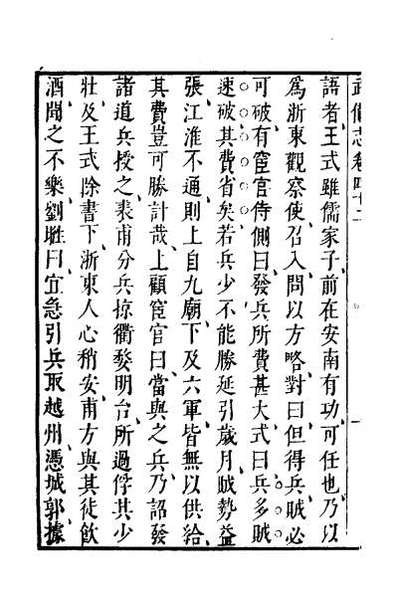 武備志卷四十二
語者王式雖儒家子前在安南有功可任也乃以
為浙東觀察使召入問以方略對曰但得兵賊必
可破有宦官侍側曰發兵所費甚大式曰兵多賊
速破其費省矣若兵少不能勝延引歲月賊勢益
張江淮不通則上自九廟下及六軍皆無以供給
其費豈可勝計哉上顧宦官曰當與之兵乃詔發
諸道兵授之裘甫分兵掠衢婺明台所過俘其少
壯及王式除書下浙東人心稍安甫方與其徒飲
酒聞之不樂劉暀曰宜急引兵取越州憑城郭據